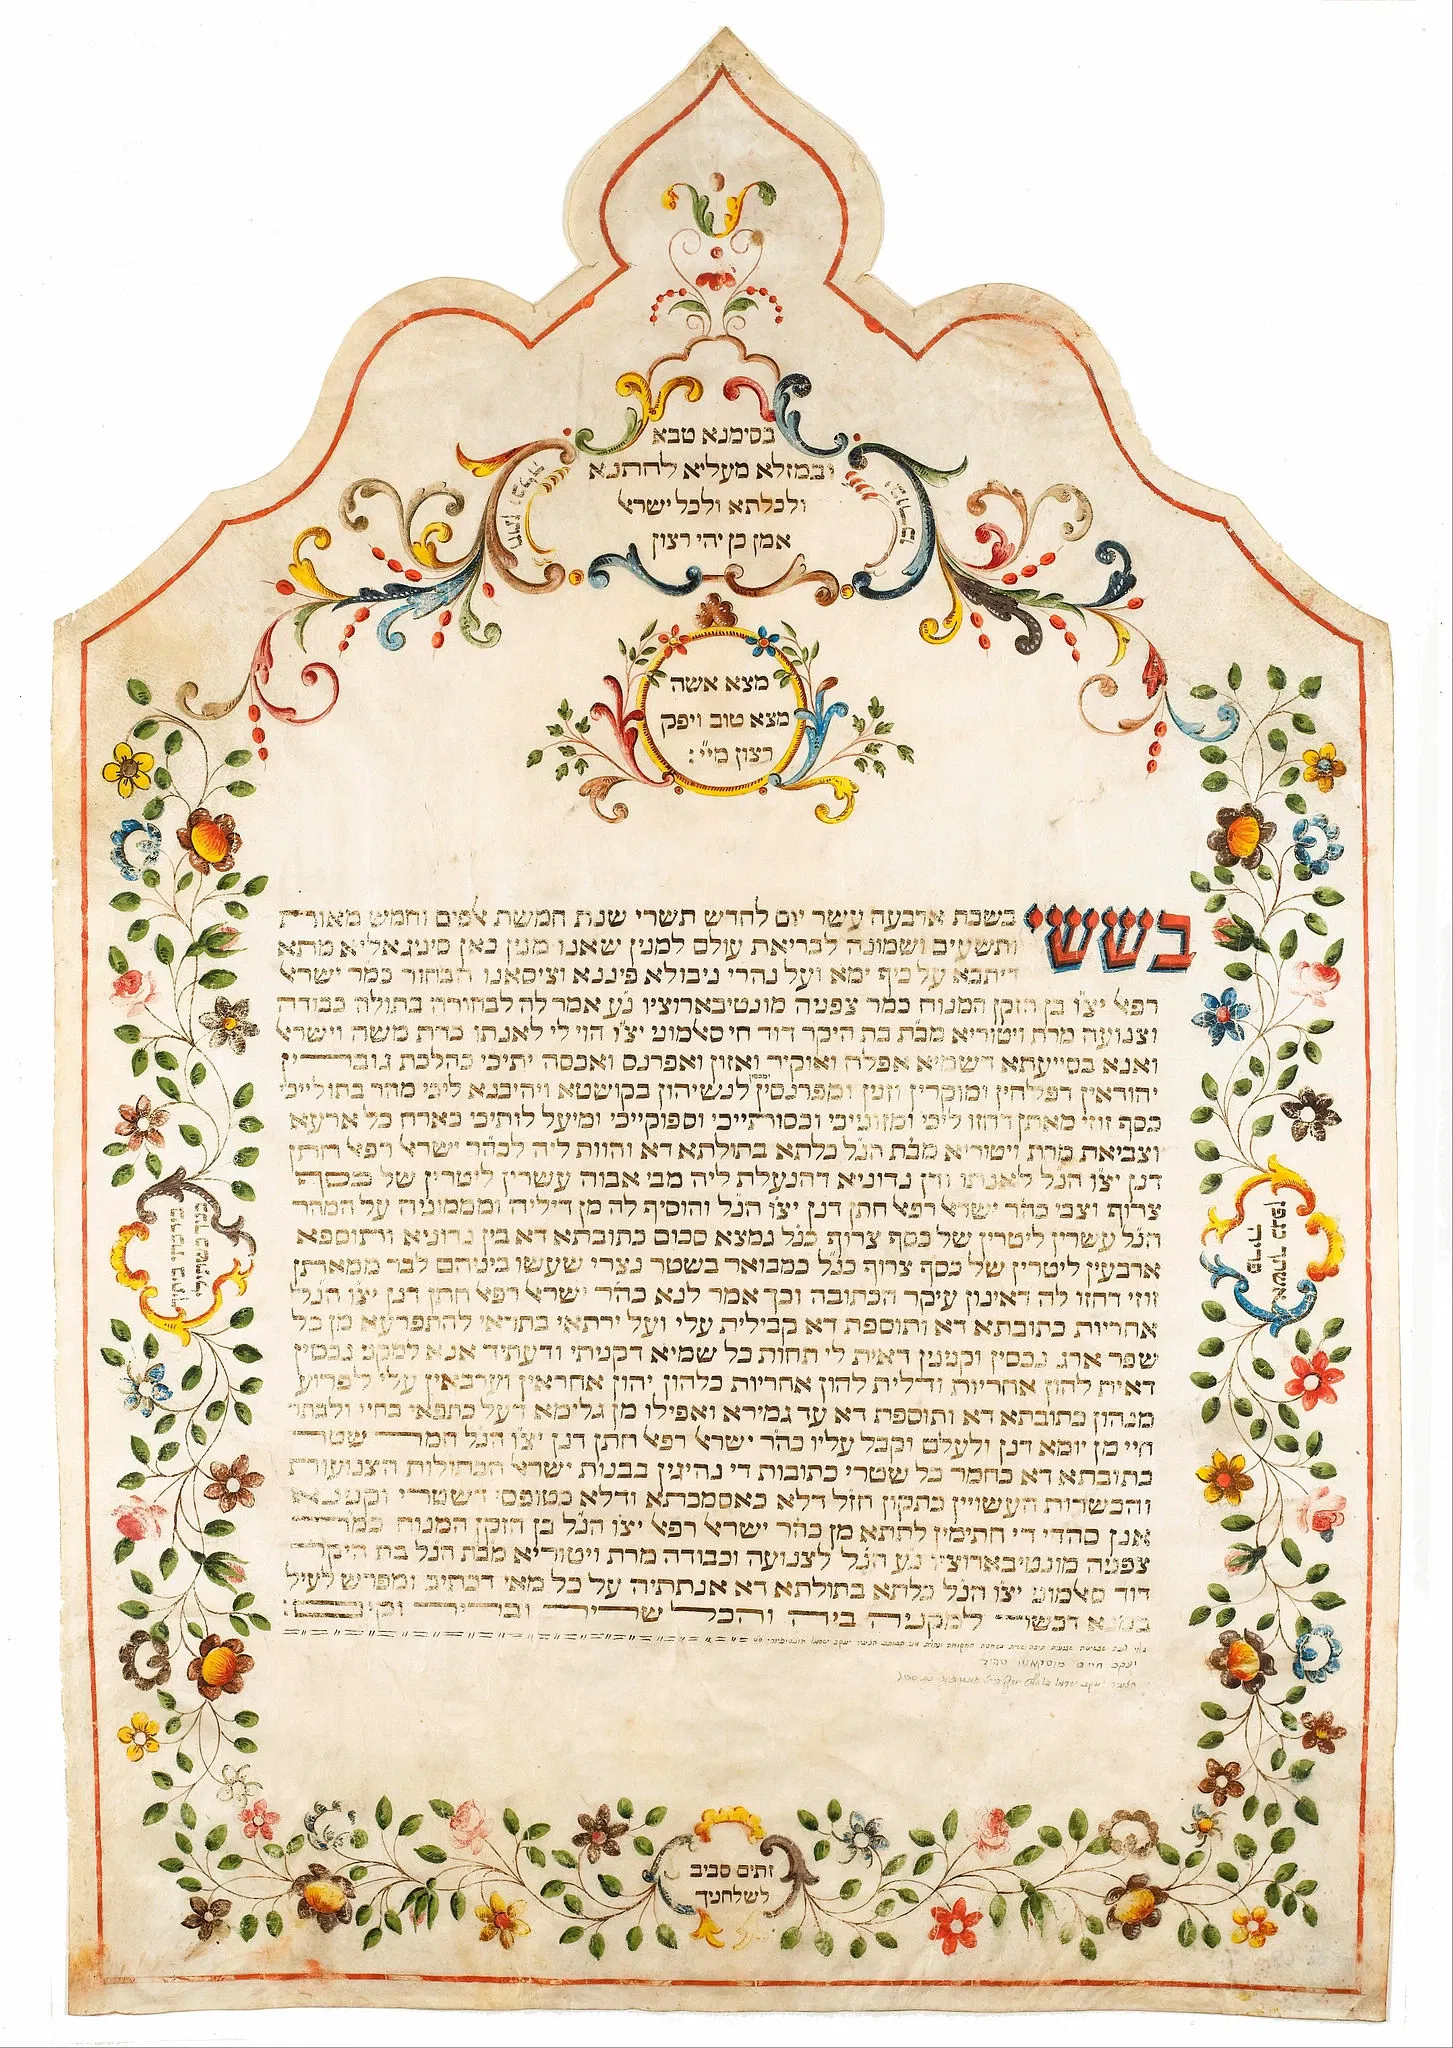 בסימנא טבא
ובמזלא מעליא לחתנא
ולכלתא ולכל ישראל
אמן כן יהי רצון
מצא אשה
מצא טוב ויפק
רצון מיי׳׳:
בששי
בשבת ארבעה עשר יום לחדש תשרי שנת חמשת אלפים וחמש מאורת
ותשעים ושמונה לבריאת עולם למנין שאנו מנין כאן סיניגאליא מתא
דיתבא על כיף ימא ועל נהרי ניבולא פיננא וציסאנו הבחור כמר ישראל
רפאל יצ״ו בן הזקן המנוח כמר צפניה מונטיבארוציו נ״ע אמר לה לבחורה בתולה כבודה
וצנועה מרת ויטוריא מב״ת בת היקר דוד חי סאלמוני יצ״ו הוי לי לאנתו כדת משה וישראל
ואנא בסייעתא דשמיא אפלח ואוקיר ואזון ואפרנס ואכסה יתיכי כהלכת גוברין
יהודאין דפלחין ומוקרין וזנין ומפרנסין לנשיהון בקושטא ויהיבנא ליכי מהר בתולייכי
כסף זוזי מאתן דחזו ליכי ומזוניכי ובסותייכי וספוקייכי ומיעל לותיכי כארח כל ארעא
וצביאת מרת ויטוריא מב״ת הנ״ל כלתא בתולתא דא והוות ליה לכה״ר ישראל רפאל חתן
דנן יצ״ו הנ״ל לאנתו ודן נדוניא דהנעלת ליה מבי אבוה עשרין ליטרין של כסף
צרוף וצבי כה״ר ישראל רפאל חתן דנן יצ״ו הנ״ל והוסיף לה מן דיליה וממוניה על המהר
הנ״ל עשרין ליטרין של כסף צרוף כנ״ל נמצא סכום כתובתא דא בין נדוניא ותוספא
ארבעין ליטרין של כסף צרוף כנ״ל כמבואר בשטר נצרי שעשו ביניהם לבר ממאתן
זוזי דחזו לה דאינון עיקר הכתובה וכך אמר לנא כה״ר ישראל רפאל חתן דנן יצ״ו הנ״ל
אחריות כתובתא דא ותוספת דא קבילית עלי ועל ירתאי בתראי להתפרעא מן כל
שפר ארג נכסין וקנינין דאית לי תחות כל שמיא דקניתי ודעתיד אנא למקני נכסין
דאית להון אחריות ודלית להון אחריות כלהון יהון אחראין וערבאין עלי לפרוע
מנהון כתובתא דא ותוספת דא עד גמירא ואפילו מן גלימא דעל כתפאי בחיי ולבתר
חיי מן יומא דנן ולעלם וקבל עליו כה״ר ישראל רפאל חתן דנן יצ״ו הנ״ל חמר שטר
כתובתא דא כחמר כל שטרי כתובות די נהיגין בבנות ישראל הבתולות הצנועות
והכשרות העשויין כתקון חז״ל דלא כאסמכתא ודלא כטופסי דשטרי וקנינא
אנן סהדי די חתימין לתתא מן כה״ר ישראל רפאל יצ״ו הנ״ל בן הזקן המנוח כמר
צפניה מונטיבארוציו נ״ע הנ״ל לצנועה וכבודה מרת ויטוריא מב״ת הנ״ל בת היקר
דוד סאלמוני יצ״ו הנ״ל כלתא בתולתא דא אנתתיה על כל מאי דכתיב ומפרש לעיל
במנא דכשר למקניה ביה והכל שריר ובריר וקים:
יעקב חיים
אשתך כגפן
פוריה
זתים סביב
לשלחניך